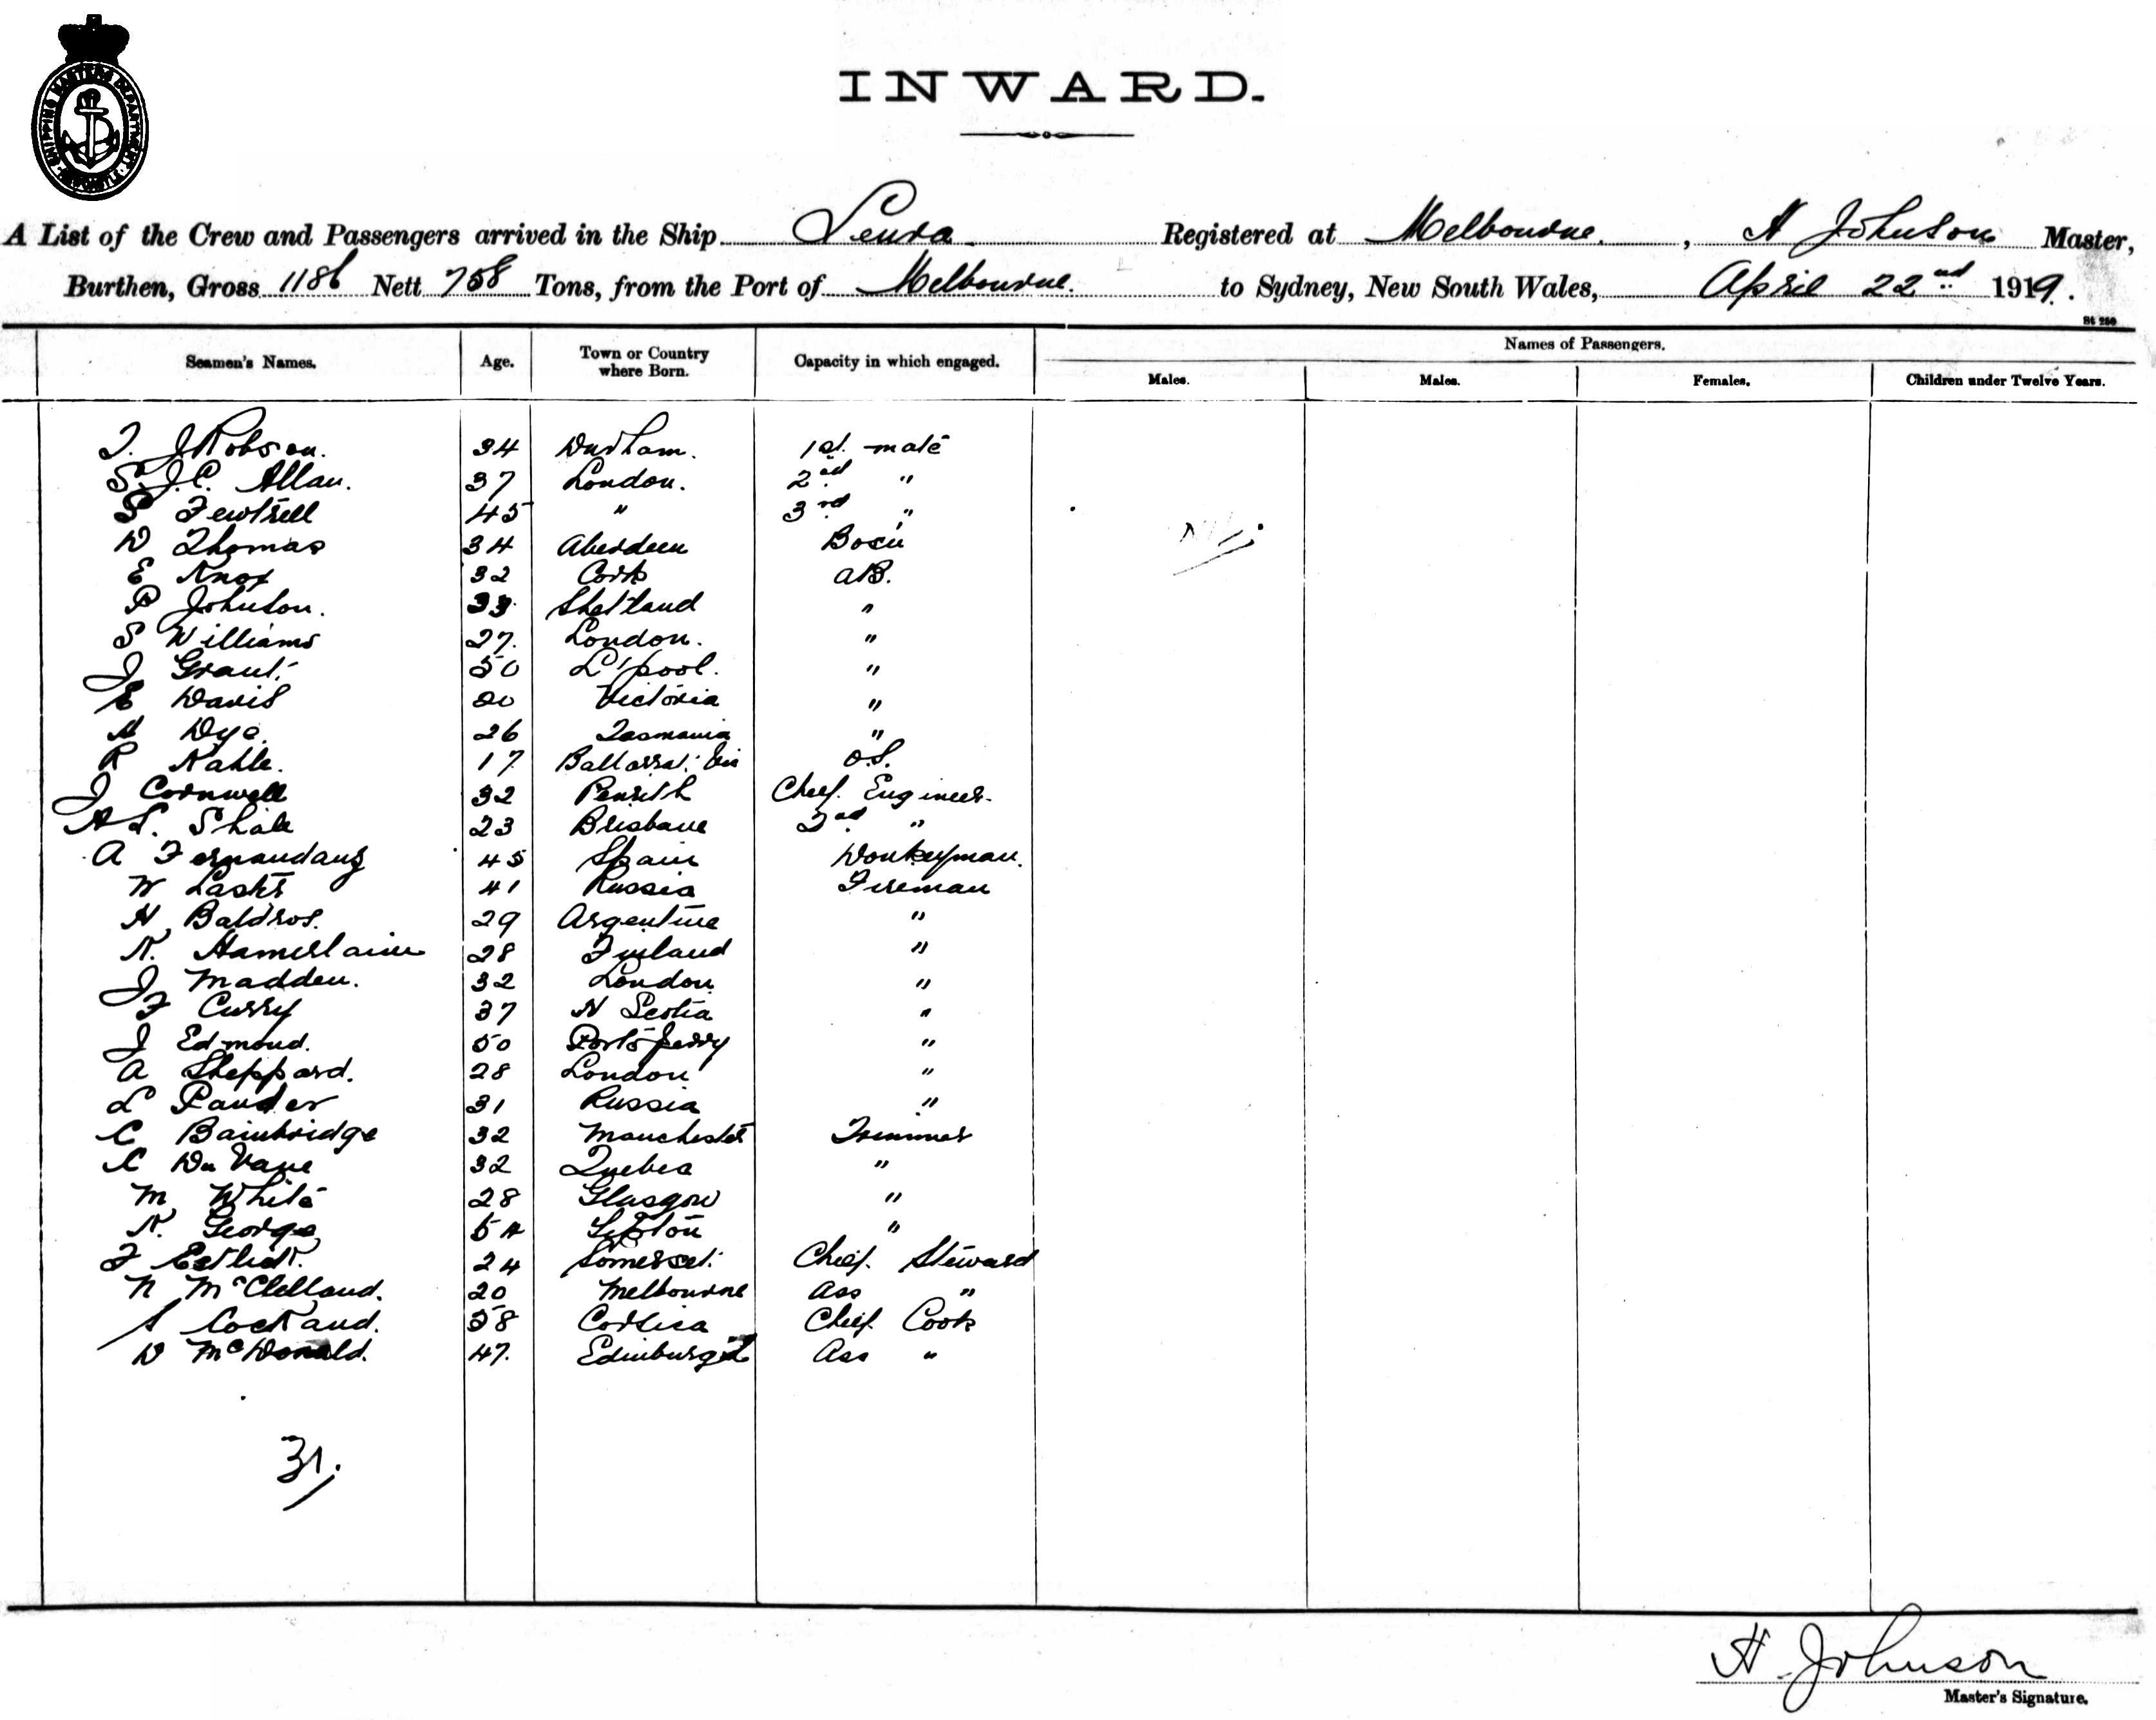 SHIPPING MASTERS DEPARTMENT
INWARD.
A List of the Crew and Passengers arrived in the Ship Leura Registered at Melbourne, H Johnson Master,
Burthen, Gross 1186 Nett 758 Tons, from the Port of Melbourne. to Sydney, New South Wales, April 22nd 1919.
St 250
Seamen's Names. Age. Town or Country where Born. Capacity in which engaged. Names of Passengers.
Males. Males. Females. Children under Twelve Years.
T. J Robson. 34 Durham. 1st. mate
S. J.C. Allan. 37 London. 2nd "
S Fewtrell 45 " 3rd "
D Thomas 34 Aberdeen Bosn
E Knox 32 Cork AB.
P Johnson. 33 Shetland "
S Williams 27. London. "
J Grant. 50 L'pool. "
E Davis 20 Victoria "
H Dye. 26 Tasmania "
R Kahle. 17 Ballarat. Vic O.S.
J Cornwell 32 Penrith Chief. Engineer.
A L. Shale 23 Brisbane 2nd "
A Fernandanz 45 Spain Donkeyman.
W Lasks 41 Russia Fireman
H Baldros. 29 Argentine "
K. Hamerlainen 28 Finland "
J Madden. 32 London "
F Curry 37 N Scotia "
J Edmond. 50 Port Perry "
A Sheppard. 28 London "
L Pander 31 Russia "
C Bainbridge 32 Manchester Trimmer
C Du Vane 32 Quebec "
M White 28 Glasgow "
K. George 54 "
F 24 Somerset. Chief. Steward
N McClelland. 20 Melbourne Ass "
A Cockand. 58 Corsica Chief Cook
D McDonald. 47. Edinburgh Ass "
31.
H. Johnson
Master's Signature.